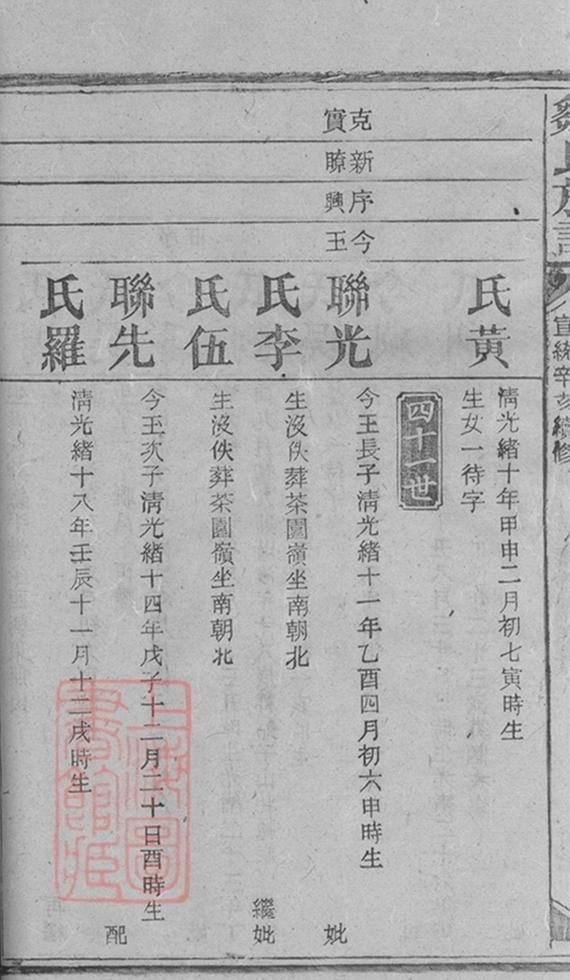 鄒氏族譜
宣統辛亥續修
氏黃
清光緒十年甲申二月初七寅時生
生女一待字
四十一世
克實
新瞭
序興
今王
聯光
今王長子清光緒十一年乙酉四月初六申時生
妣
氏李
生沒佚葬茶園嶺坐南朝北
繼妣
氏伍
生沒佚葬茶園嶺坐南朝北
聯先
今王次子清光緒十四年戊子十二月二十日酉時生
配
氏羅
清光緒十八年壬辰十一月十二戌時生
上海圖
書館藏